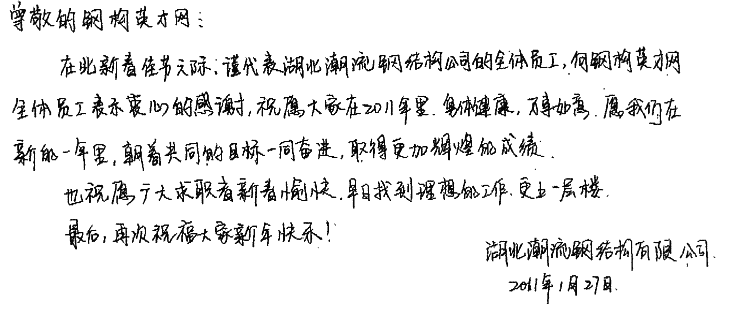 尊敬的钢构英才网：
在此新春佳节之际，谨代表湖北潮流钢结构公司的全体员工，向钢构英才网
全体员工表示衷心的感谢，祝愿大家在2011年里，身体健康，万事如意，愿我们在
新的一年里，朝着共同的目标一同奋进，取得更加辉煌的成绩．
也祝愿广大求职者新春愉快，早日找到理想的工作．更上一层楼．
最后，再次祝福大家新年快乐！
湖北潮流钢结构有限公司．
2011年1月27日．